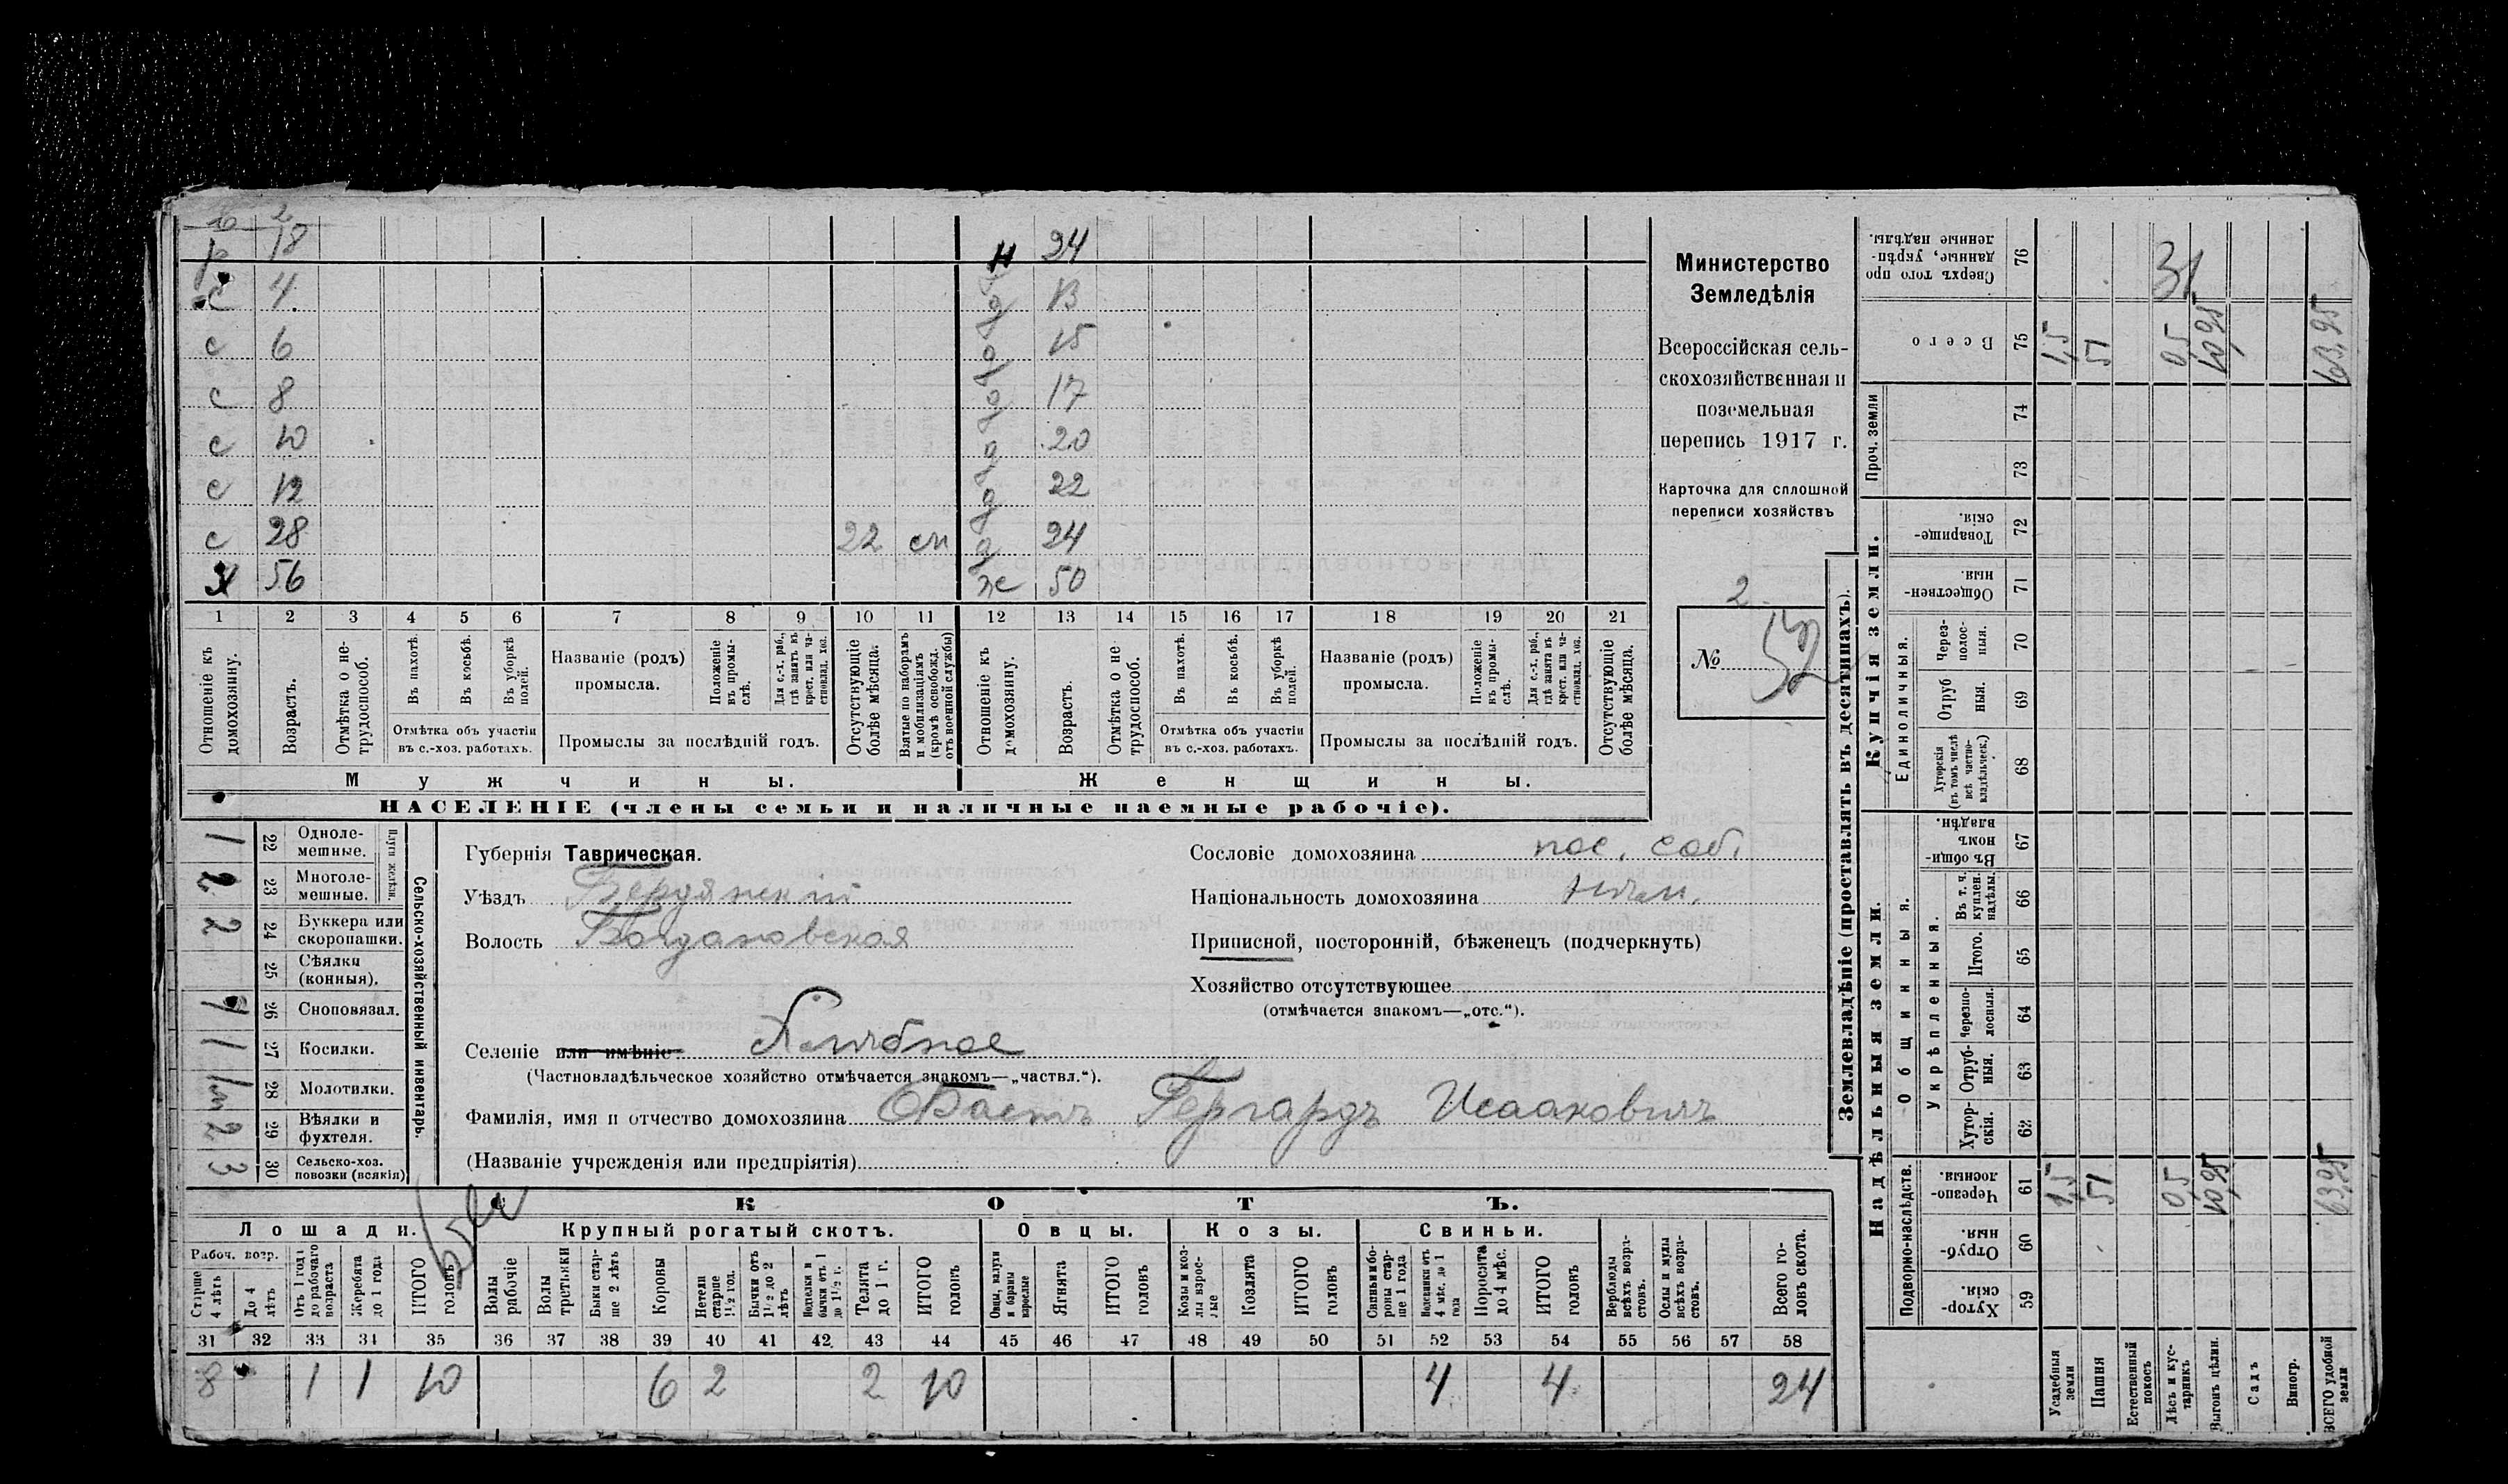 ю 2
р 18 н 24
с 4 д 13
с 6 д 15
с 8 д 17
с 10 д 20
с 12 д 22
с 28 22 сп д 24
х 56 ж 50
1 2 3 4 5 6 7 8 9 10 11 12 13 14 15 16 17 18 19 20 21
Отношеніе къ домохозяину.
Возрастъ.
Отмѣтка о нетрудоспособ.
Въ пахотѣ.
Въ косьбѣ.
Въ уборкѣ полей.
Отмѣтка объ участіи въ с.-хоз. работахъ.
Названіе (родъ) промысла.
Положеніе въ промыслѣ.
Для с.-х. раб., гдѣ занятъ въ крест. или частновлад. хоз.
Промыслы за послѣдній годъ.
Отсутствующіе болѣе мѣсяца.
Взятые по наборамъ и мобилизаціямъ (кромѣ освобожд. отъ военной службы)
Отношеніе къ домохозяину.
Возрастъ.
Отмѣтка о не трудоспособ.
Въ пахотѣ.
Въ косьбѣ.
Въ уборкѣ полей.
Отмѣтка объ участіи въ с.-хоз. работахъ.
Названіе (родъ) промысла.
Положеніе въ промыслѣ.
Для с.-х. раб., гдѣ занята въ крест. или частновлад. хоз.
Промыслы за послѣдній годъ.
Отсутствующіе болѣе мѣсяца.
Мужчины.
Женщины.
НАСЕЛЕНІЕ (члены семьи и наличные наемные рабочіе).
Министерство
Земледѣлія
Всероссійская сель-
скохозяйственная и
поземельная
перепись 1917 г.
Карточка для сплошной
переписи хозяйствъ
2
№ 52
Сельско-хозяйственный инвентарь.
Плуги желѣзн.
1 22 Одноле-мешные.
2 23 Многоле-мешные.
2 24 Буккера или скоропашки.
25 Сѣялки (конныя).
1 26 Сноповязал.
1 27 Косилки.
1 28 Молотилки.
2 29 Вѣялки и фухтеля.
3 30 Сельско-хоз. повозки (всякія)
Губернія Таврическая.
Уѣздъ Бердянскій
Волость Богдановская
Сословіе домохозяина пос. соб.
Національность домохозяина нѣм.
Приписной, посторонній, бѣженецъ (подчеркнуть)
Хозяйство отсутствующее
(отмѣчается знакомъ—„отс.“).
Селеніе или имѣніе Хлѣбное
(Частновладѣльческое хозяйство отмѣчается знакомъ—„частвл.“).
Фамилія, имя и отчество домохозяина Фастъ Гергардъ Исааковичъ
(Названіе учрежденія или предпріятія)
СКОТЪ.
Лошади. Крупный рогатый скотъ. Овцы. Козы. Свиньи.
Рабоч. возр.
Старше 4 лѣтъ
До 4 лѣтъ
Отъ 1 года до рабочаго возраста
Жеребята до 1 года
ИТОГО головъ
Волы рабочіе
Волы третьяки
Быки старше 2 лѣтъ
Коровы
Нетели старше 1½ год.
Бычки отъ 1½ до 2 лѣтъ
Нетели и бычки отъ 1 до 1½ г.
Телята до 1 г.
ИТОГО головъ
Овцы, валухи и бараны взрослые
Ягнята
ИТОГО головъ
Козы и козлы взрослые
Козлята
ИТОГО головъ
Свиньи и бороны старше 1 года
Подсвинки отъ 4 мѣс. до 1 года
Поросята до 4 мѣс.
ИТОГО головъ
Верблюды всѣхъ возрастовъ.
Ослы и мулы всѣхъ возрастовъ.
Всего головъ скота.
31 32 33 34 35 36 37 38 39 40 41 42 43 44 45 46 47 48 49 50 51 52 53 54 55 56 57 58
8 1 1 10 6 2 2 10 4 4 24
Землевладѣніе (проставлять въ десятинахъ).
Купчія земли.
Надѣльныя земли.
Проч. земли
Единоличныя.
Общинныя.
Укрѣпленныя.
Подворно-наслѣдств.
Сверхъ того проданные, укрѣпленные надѣлы. 76 31
Всего 75 1,5 51 0,5 10,95 63,95
74
73
Товарищескія. 72
Общественныя. 71
Черезполосныя. 70
Отрубныя. 69
Хуторскія (въ томъ числѣ всѣ частновладѣльческ.) 68
Въ общинномъ владѣн. 67
Въ т. ч. куплен. надѣлы. 66
Итого. 65
Черезполосныя. 64
Отрубныя. 63
Хуторскія. 62
Черезполосныя. 61 1,5 51 0,5 10,95 63,95
Отрубныя. 60
Хуторскія. 59
Усадебныя земли
Пашня
Естественный покосъ
Лѣсъ и кустарникъ
Выгонъ цѣлин.
Садъ
Виногр.
ВСЕГО удобной земли